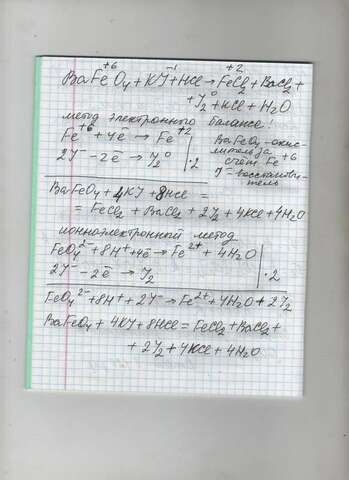 +6 -1 +2
BaFeO4 + KJ + HCl → FeCl2 + BaCl2 +
+ J2⁰ + KCl + H2O
метод электронного баланса:
Fe⁺⁶ + 4ē → Fe⁺²
2J⁻ - 2ē → J2⁰ | ·2
BaFeO4 - окис-
литель за
счёт Fe⁺⁶
J⁻ - восстанови-
тель
BaFeO4 + 4KJ + 8HCl =
= FeCl2 + BaCl2 + 2J2 + 4KCl + 4H2O
ионноэлектронный метод
FeO4²⁻ + 8H⁺ + 4ē → Fe²⁺ + 4H2O
2J⁻ - 2ē → J2 | ·2
FeO4²⁻ + 8H⁺ + 2J⁻ → Fe²⁺ + 4H2O + 2J2
BaFeO4 + 4KJ + 8HCl = FeCl2 + BaCl2 +
+ 2J2 + 4KCl + 4H2O